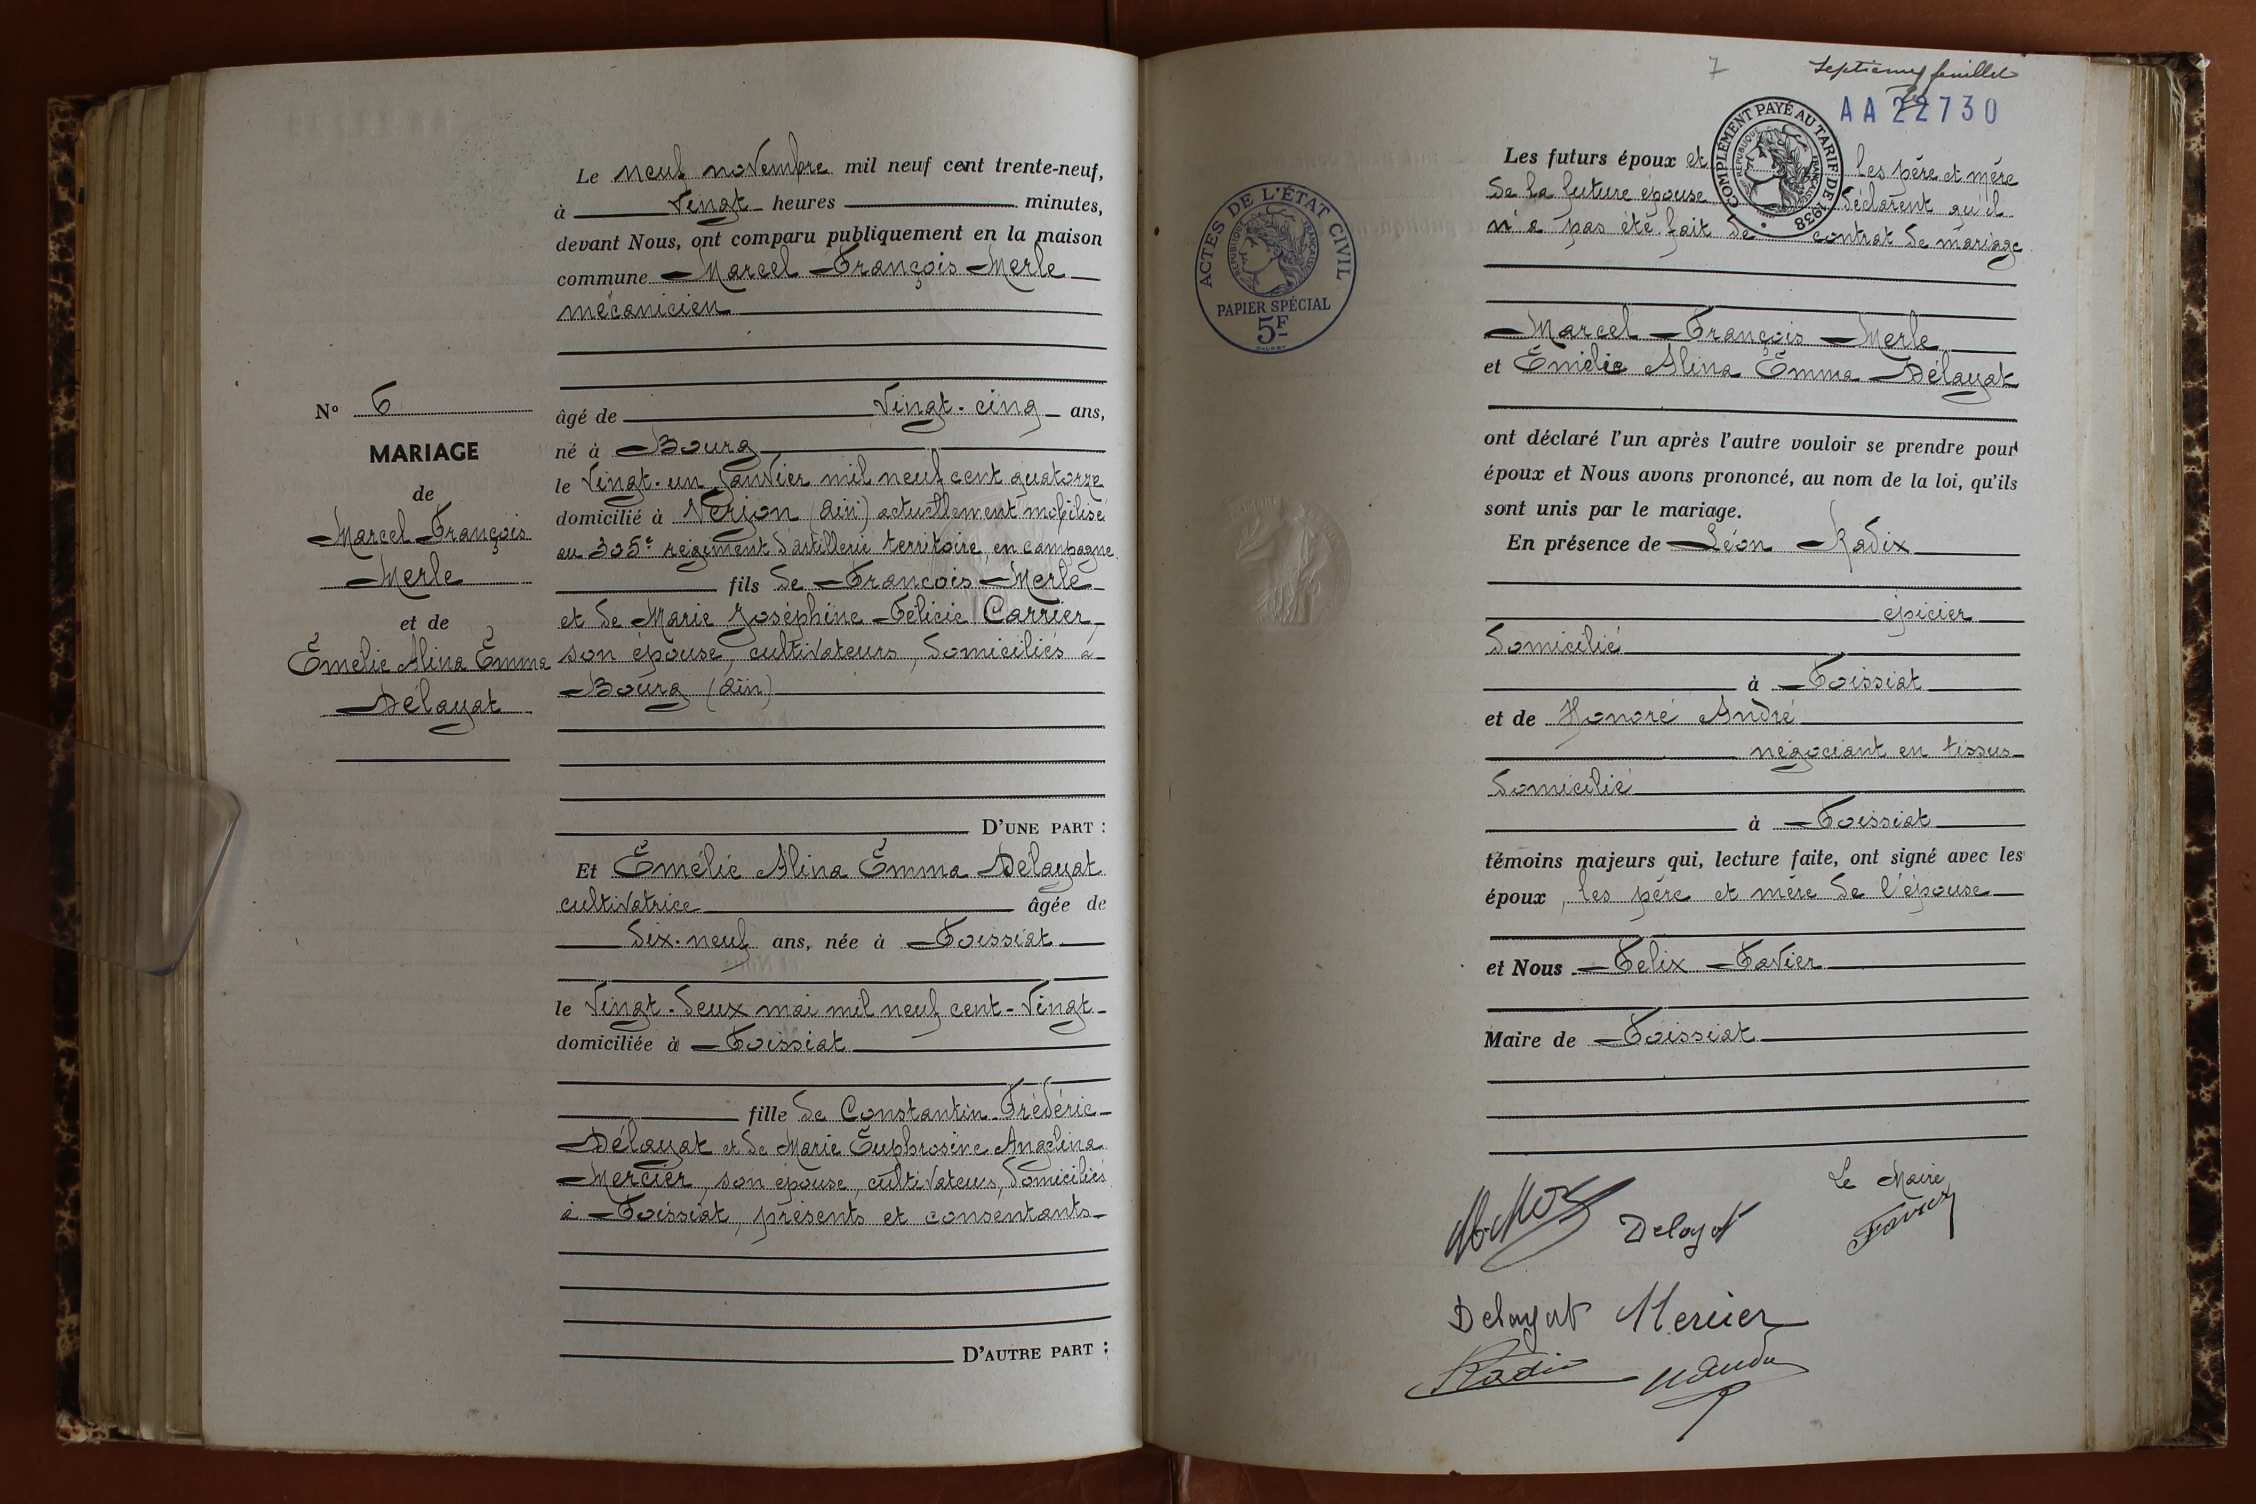 Le neuf novembre mil neuf cent trente-neuf,
à vingt heures minutes,
devant Nous, ont comparu publiquement en la maison
commune Marcel François Merle
mécanicien
N° 6
MARIAGE
de
Marcel François
Merle
et de
Émélie Alina Emma
Délayat
âgé de vingt-cinq ans,
né à Bourg
le vingt-un janvier mil neuf cent quatorze
domicilié à Verjon (Ain) actuellement mobilisé
au 305e régiment d'artillerie territoire, en campagne
fils de François Merle
et de Marie Joséphine Félicie Carrier,
son épouse, cultivateurs, domiciliés à
Bourg (Ain)
D'UNE PART :
Et Émélie Alina Emma Délayat
cultivatrice âgée de
dix-neuf ans, née à Foissiat
le vingt-deux mai mil neuf cent-vingt
domiciliée à Foissiat
fille de Constantin Frédéric
Délayat et de Marie Euphrosine Angelina
Mercier, son épouse, cultivateurs, domiciliés
à Foissiat, présents et consentants
D'AUTRE PART :
7 Septième feuillet
AA 22730
COMPLÉMENT PAYÉ AU TARIF DE 1938
RÉPUBLIQUE FRANÇAISE
ACTES DE L'ÉTAT CIVIL
RÉPUBLIQUE FRANÇAISE
PAPIER SPÉCIAL
5F
Les futurs époux et les père et mère
de la future épouse déclarent qu'il
n'a pas été fait de contrat de mariage
Marcel François Merle
et Émélie Alina Emma Délayat
ont déclaré l'un après l'autre vouloir se prendre pour
époux et Nous avons prononcé, au nom de la loi, qu'ils
sont unis par le mariage.
En présence de Léon Radix
épicier
domicilié
à Foissiat
et de Honoré André
négociant en tissus
domicilié
à Foissiat
témoins majeurs qui, lecture faite, ont signé avec les
époux, les père et mère de l'épouse
et Nous Félix Favier
Maire de Foissiat
Le Maire
Favier
Delayat
Delayat Mercier
Radix